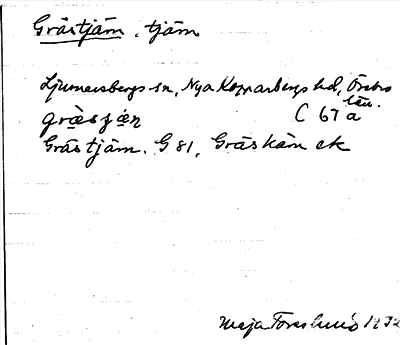 Gråstjärn, tjärn
Ljusnarsbergs sn, Nya Kopparbergs hd, Örebro län.
gràs ɟæ̀n C 67 a
Gråstjärn. G 81, Gråskärn ek
Maja Forslund 1932